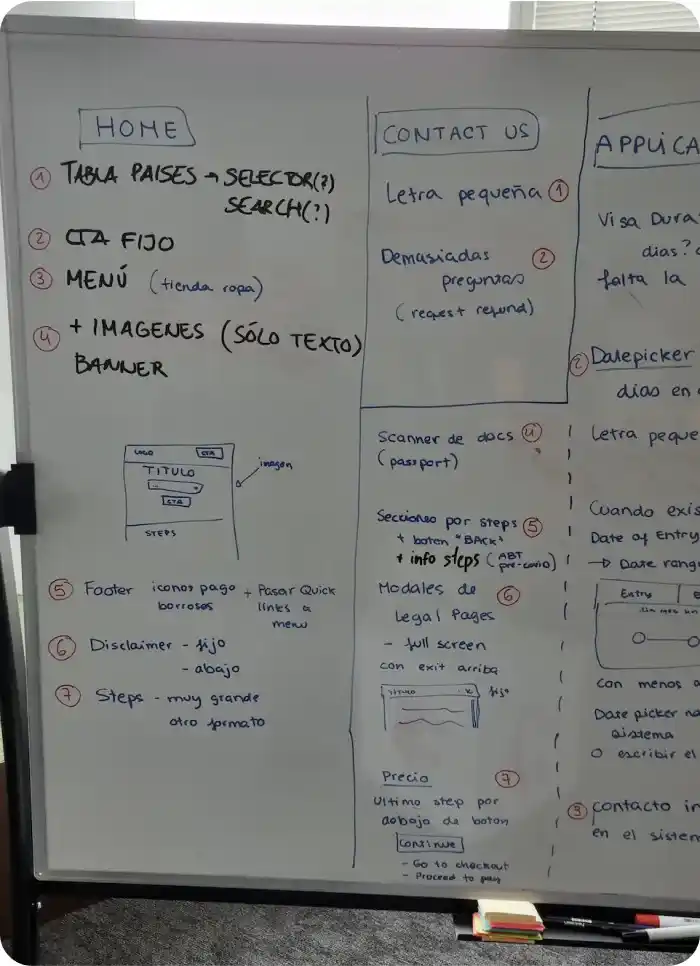 HOME
1 TABLA PAISES → SELECTOR(?)
SEARCH(?)
2 CTA FIJO
3 MENÚ (tienda ropa)
4 + IMAGENES (SÓLO TEXTO)
BANNER
LOGO CTA
TITULO
CTA
STEPS
imagen
5 Footer iconos pago + Pasar Quick
borrosos links a
menu
6 Disclaimer - fijo
- abajo
7 Steps - muy grande
otro formato
CONTACT US
Letra pequeña 1
Demasiadas 2
preguntas
(request refund)
Scanner de docs 4
(passport)
Secciones por steps 5
+ boton "BACK"
+ info steps (ABT
)
Modales de 6
Legal Pages
- full screen
con exit arriba
TITULO X fijo
Precio 7
Ultimo step por
debajo de boton
Continue
- Go to checkout
- Proceed to pay
APPLICA
Visa Dura
dias?
falta la
2 Datepicker
dias en
Letra peque
Cuando exis
Date of Entry
→ Date rang
Entry
con menos
Date picker no
sistema
O escribir el
contacto in
en el sistem